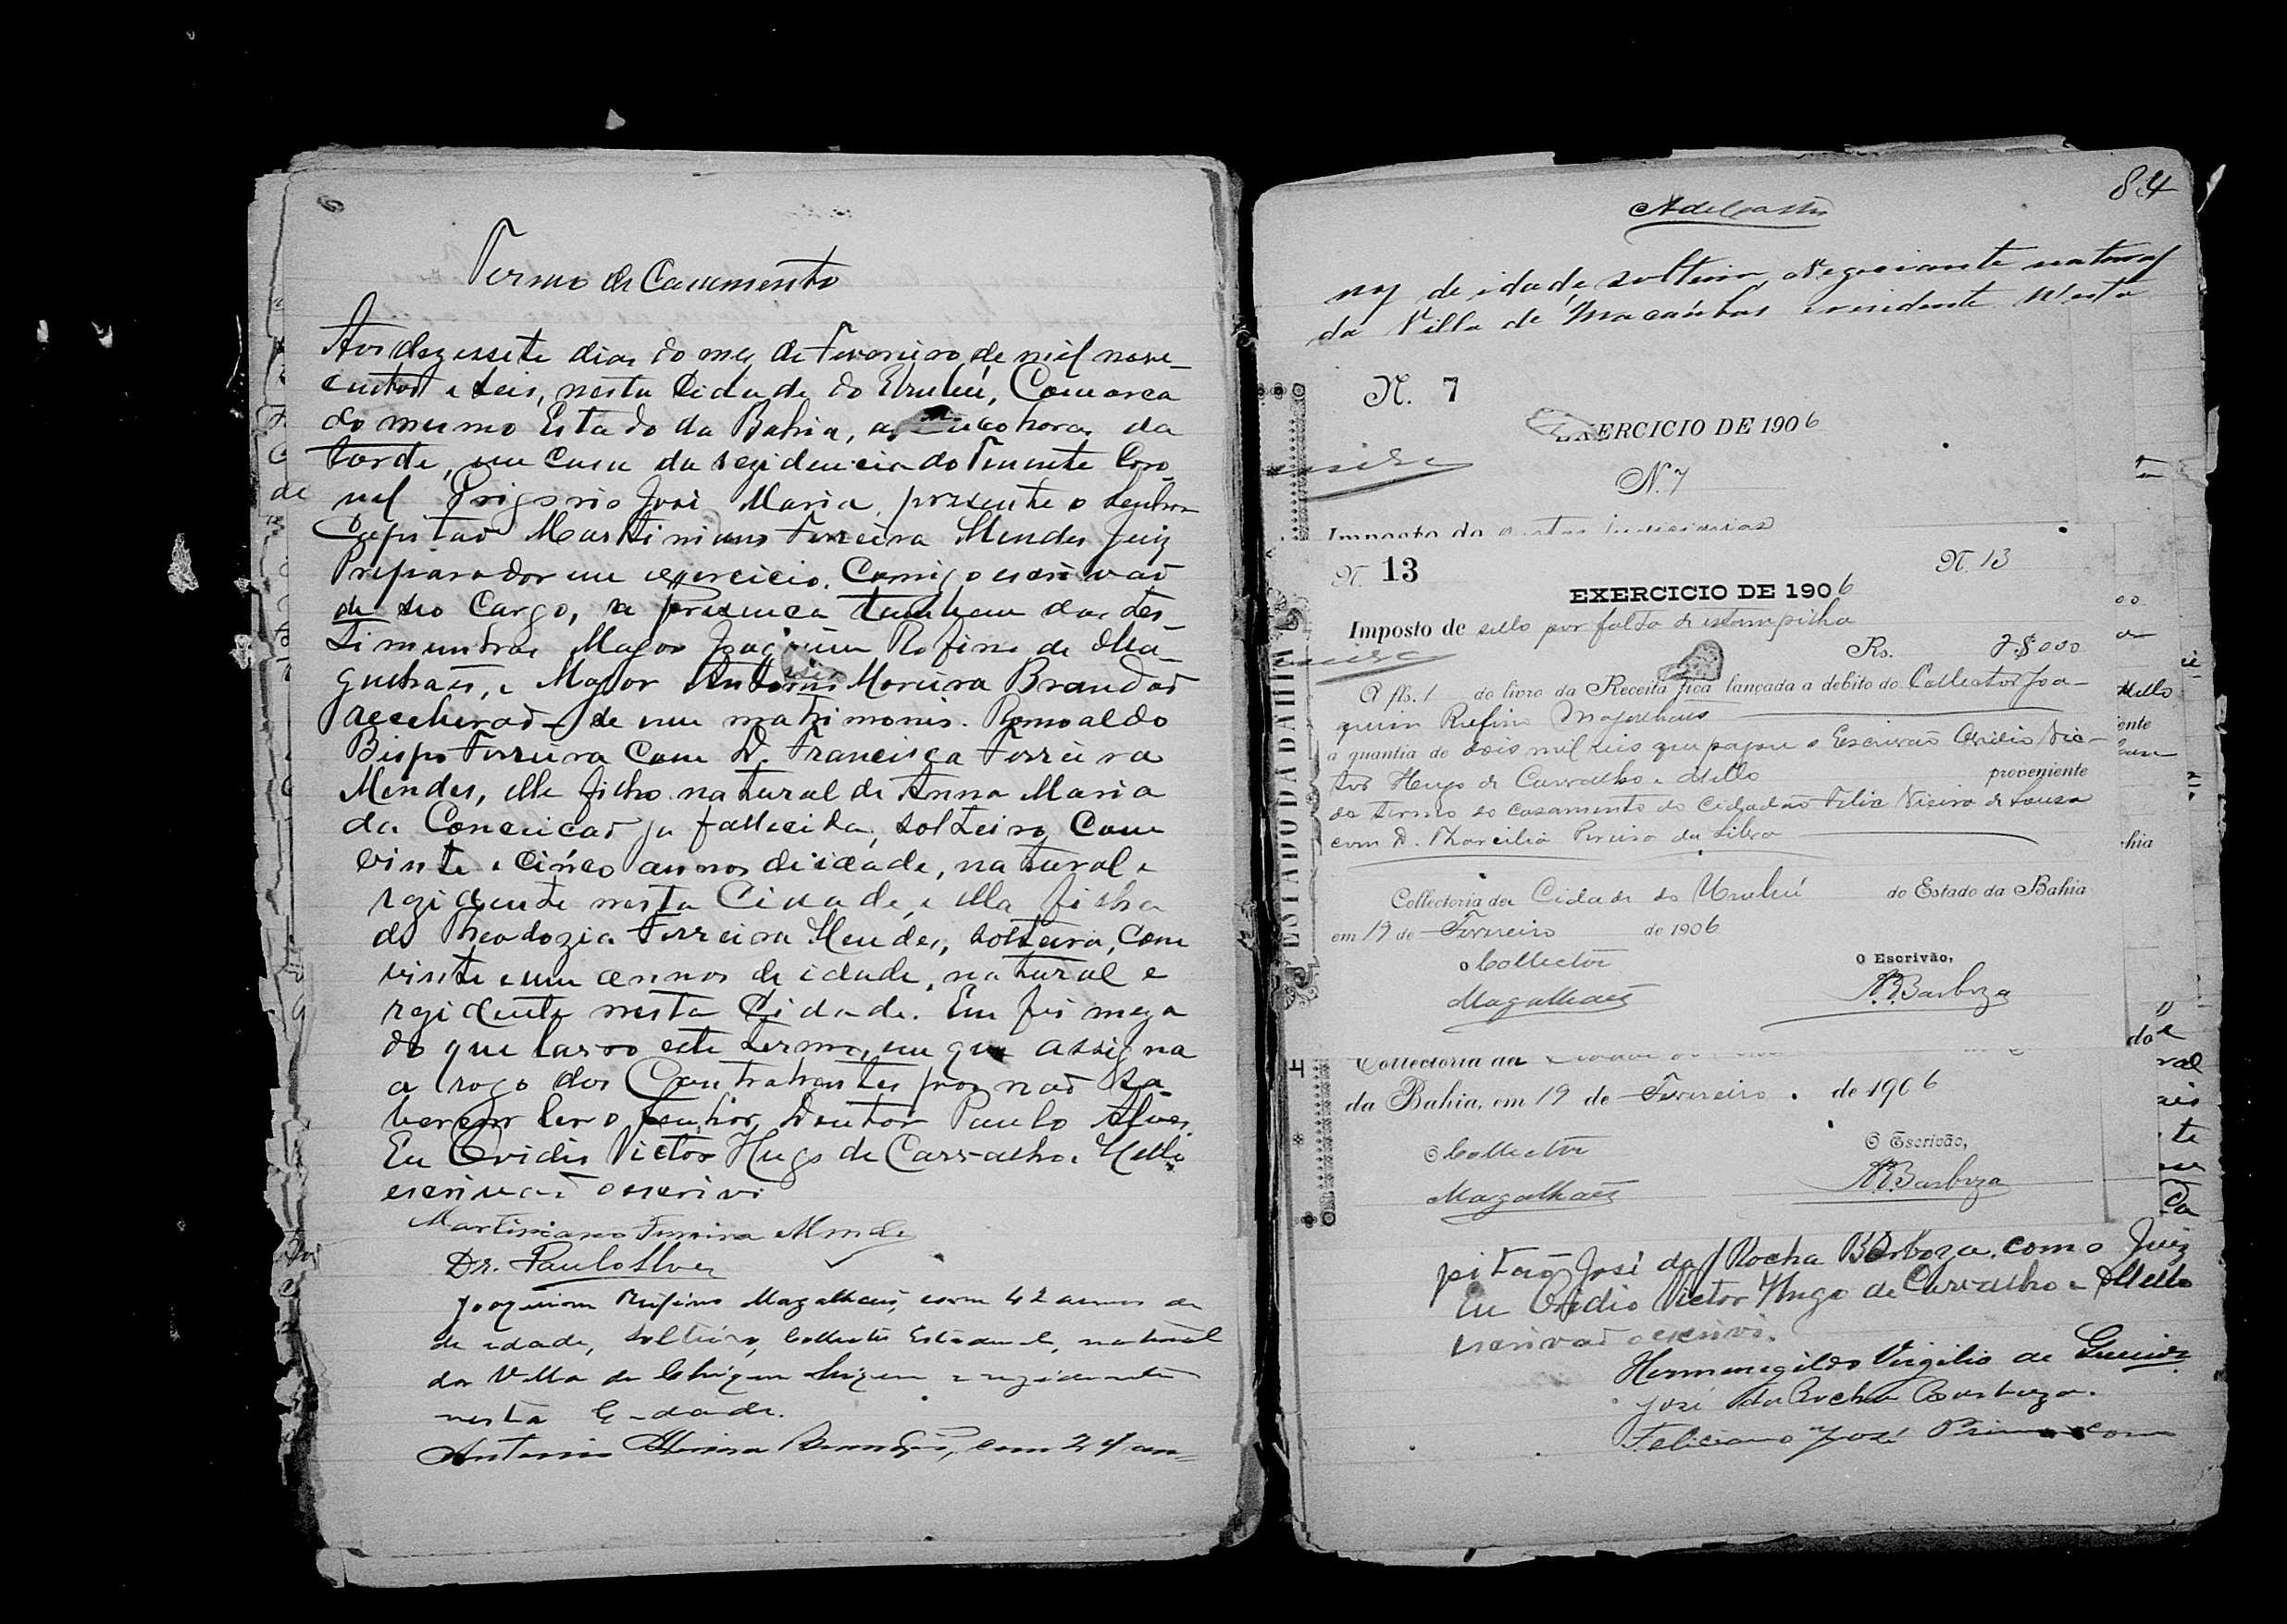 Termo de Casamento
Aos dezessete dias do mez de Fevereiro de mil nove-
centos e seis, nesta Cidade do Urubú, Comarca
do mesmo Estado da Bahia, as cinco horas da
tarde, em casa da rezidencia do Tenente Coro-
nel Prigorio José Maria, presente o Senhor
Capitão Martiniano Ferreira Mendes Juiz
Preparador em exercicio. Comigo escrivão
de seo Cargo, na presença tambem das tes-
timunhas Major Joaquim Rofino de Ma-
galhães, e Major Antonio Moreira Brandão
receberão-se em matrimonio. Romoaldo
Bispo Ferreira com D. Francisca Ferreira
Mendes, elle filho natural de Anna Maria
da Conceicão ja fallecida, solteiro, com
vinte e cinco annos de idade, natural e
rezidente nesta Cidade, e ella filha
de Theodozia Ferreira Mendes, solteira, com
vinte e um annos de idade, natural e
rezidente nesta Cidade. Em fé
do que lavro este termo, em que assigna
a rogo dos Contrahentes por não sa-
berem ler o Senhor Doutor Paulo Alves.
Eu Ovidio Victor Hugo de Carvalho e Mello
escrivão o escrivi
Martiniano Ferreira Mendes
Dr. Paulo Alves
Joaquim Rufino Magalhães, com 42 annos de
de idade, solteiro, Collector Estadual, natural
da Villa de Chique Chique e rezidente
nesta Cidade.
Antonio Moreira Brandão, com 24 an-
84
nos de idade, solteiro, Negociante natural
da Villa de Macaúbas e residente nesta
N. 7
EXERCICIO DE 1906
N. 7
Imposto de custas judiciarias
N. 13
N. 13
EXERCICIO DE 1906
Imposto de sello por falta de estampilha
Rs. 2$000
A fls. 1 do livro da Receita fica lançada a debito do Collector Joa-
quim Rufino Magalhães
a quantia de dois mil reis que pagou o Escrivão Ovidio Vic-
tor Hugo de Carvalho e Mello proveniente
do termo do casamento do Cidadão Felix Vieira de Souza
com D. Pereira da Silva
Collectoria da Cidade do Urubú do Estado da Bahia
em 19 de Fevereiro de 1906
O Collector
O Escrivão,
Magalhães
Barboza
ESTADO DA BAHIA
Collectoria da Cidade
da Bahia, em 19 de Fevereiro de 1906
O Collector
O Escrivão,
Magalhães
Barboza
pitão José da Rocha Barboza, como Juiz
Eu Ovidio Victor Hugo de Carvalho e Mello
escrivão o escrivi.
Hermenegildo Virgilio de
José da Rocha Barboza.
Feliciano José com